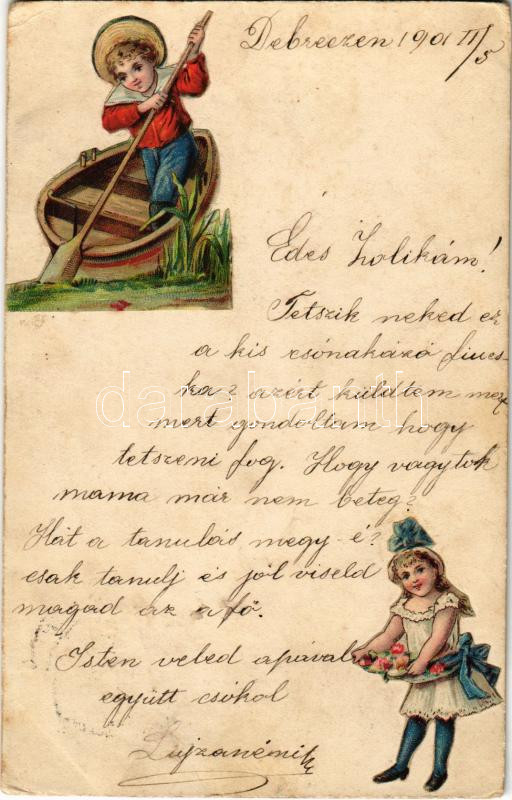 Debreczen 1901 II/5
Édes Zolikám!
Tetszik neked ez
a kis csónakázó fiucs-
ka? azért küldtem mer
mert gondoltam hogy
tetszeni fog. Hogy vagytok
mama már nem beteg?
Hát a tanulás megy-é?
csak tanulj és jól viseld
magad az a fő.
Isten veled apával
együtt csókol
Lujzanénik
darabanth